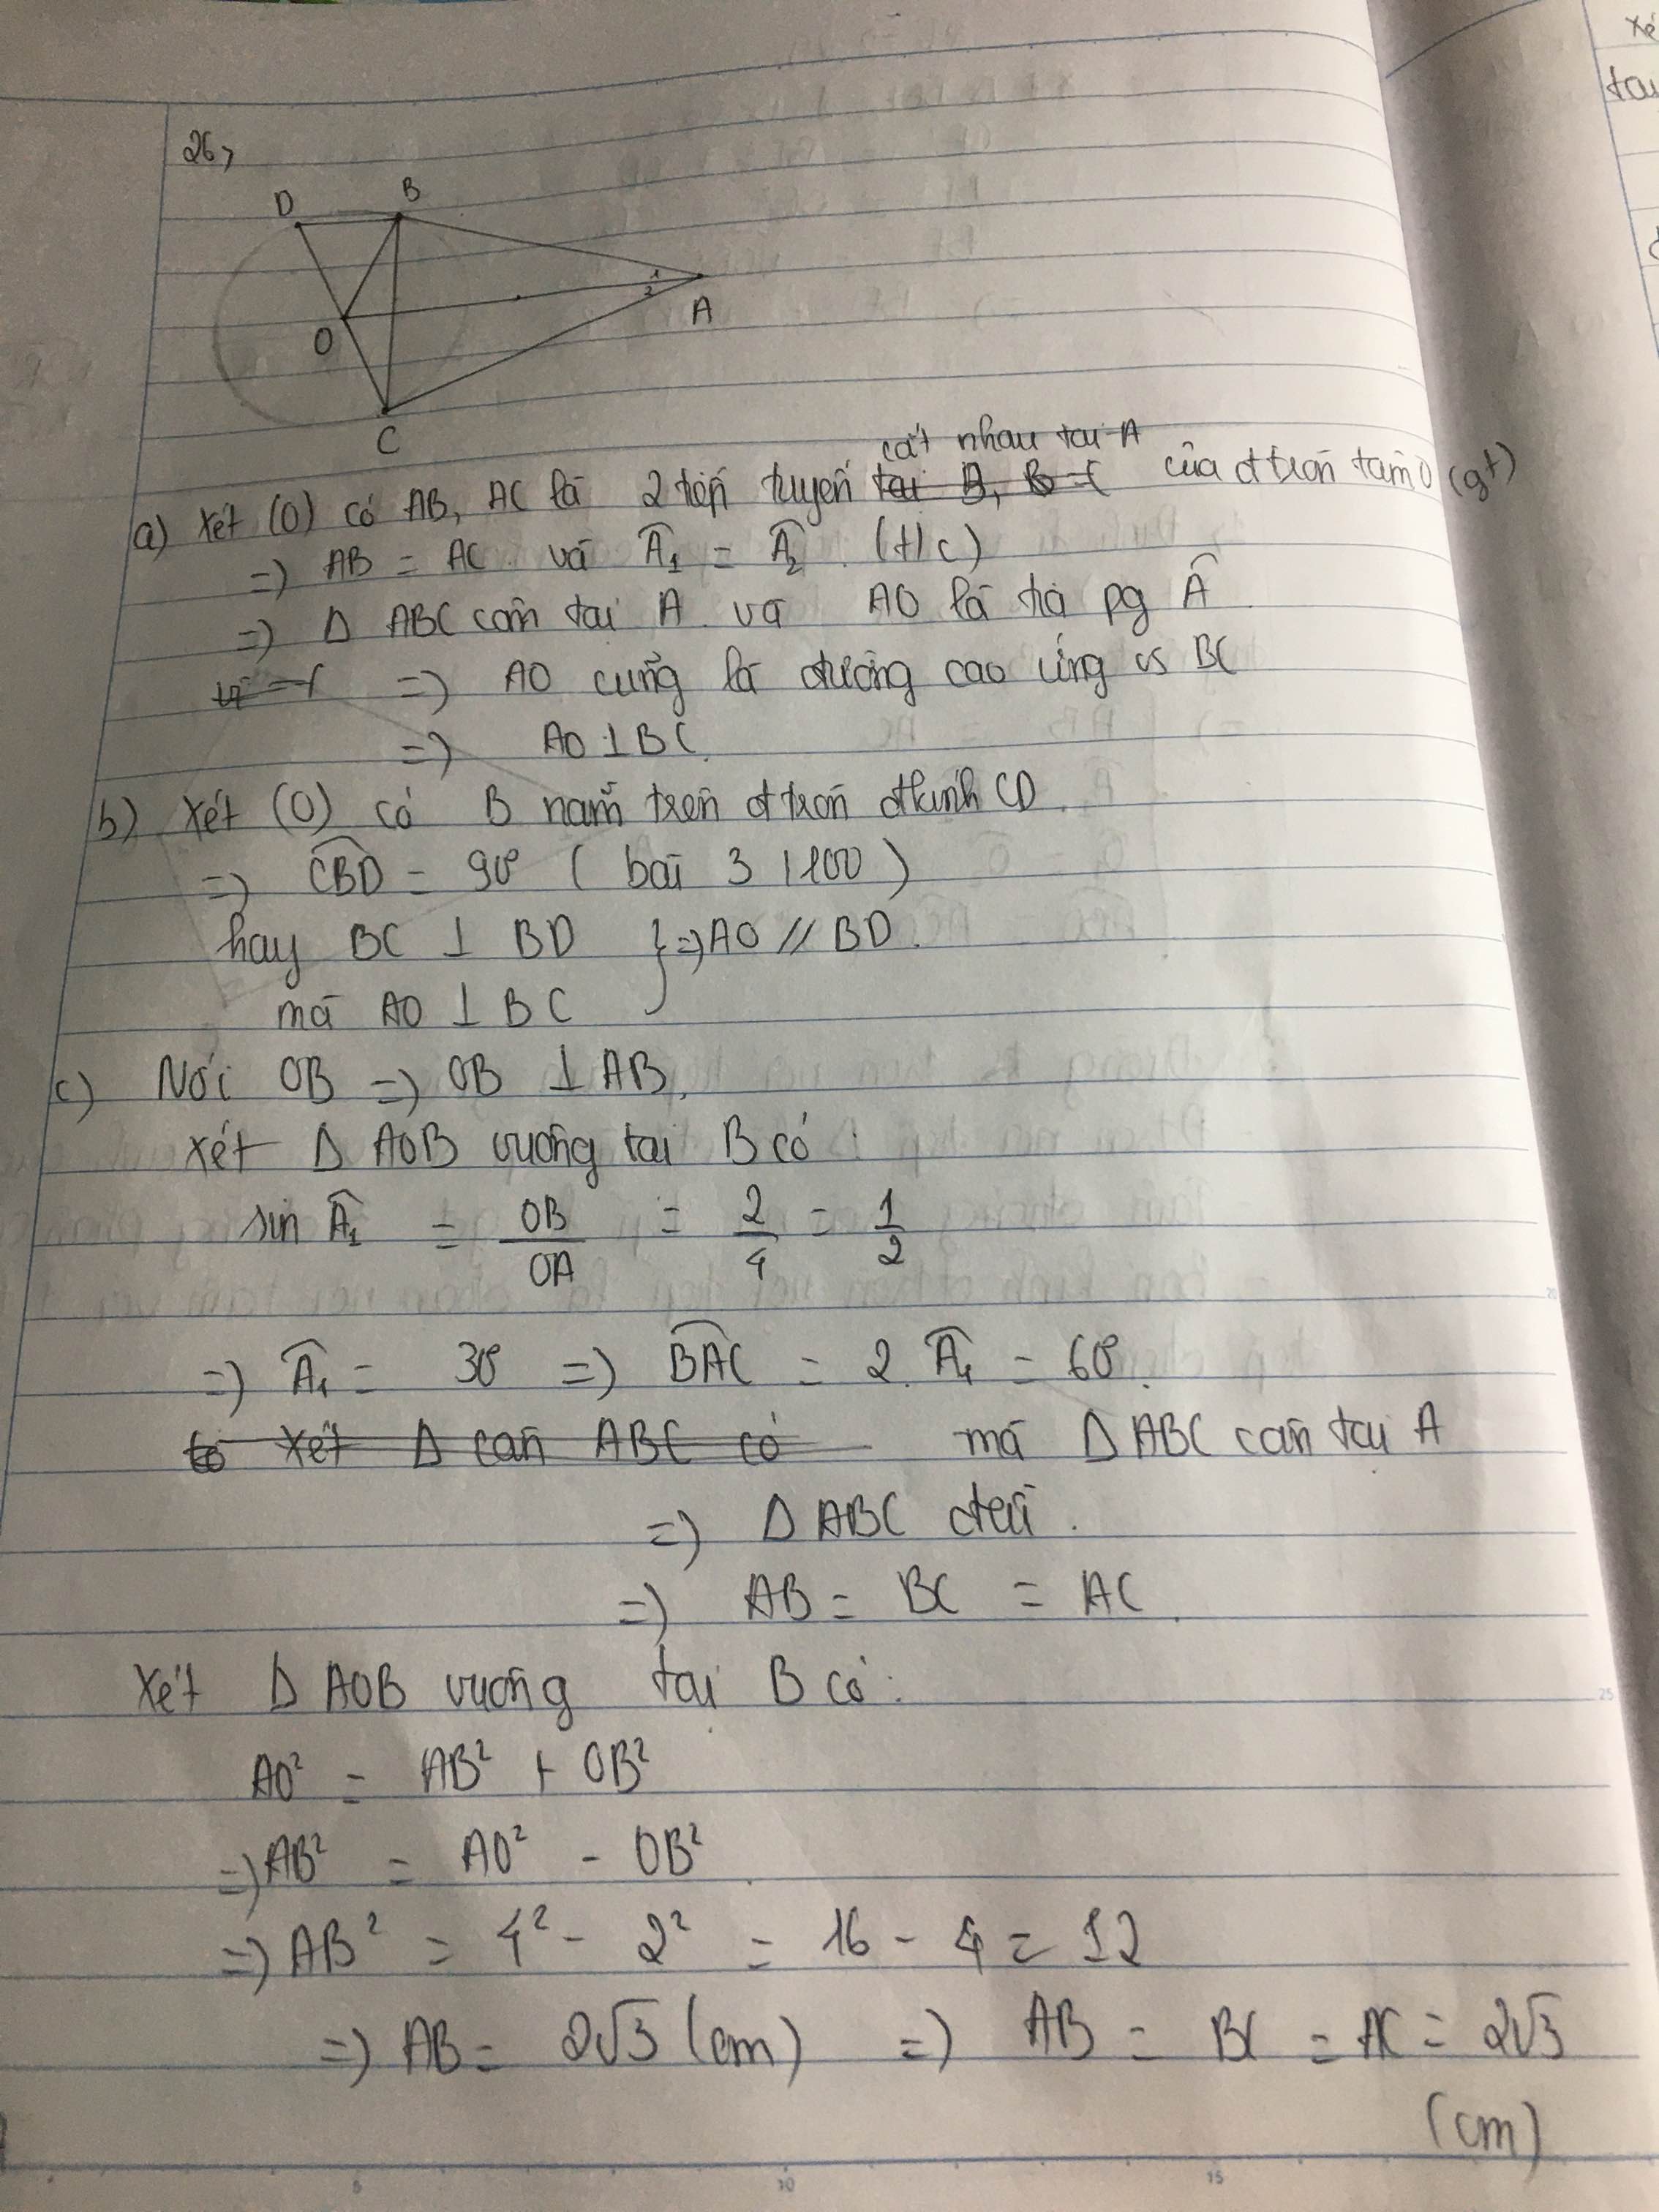 26,
D B
1
2
A
O
C
cắt nhau tại A
a) Xét (O) có AB, AC là 2 tiếp tuyến tại B, của đtròn tâm O (gt)
=> AB = AC và Â1 = Â2 (t/c)
=> Δ ABC cân tại A và AO là tia pg Â
=> AO cũng là đường cao ứng vs BC
=> AO ⊥ BC
b) Xét (O) có B nằm trên đtròn đkính CD.
=> CBD = 90° ( bài 3 / 100 )
hay BC ⊥ BD } => AO // BD.
mà AO ⊥ BC
c) Nối OB => OB ⊥ AB.
Xét Δ AOB vuông tại B có :
sin Â1 = OB/OA = 2/4 = 1/2
=> Â1 = 30° => BAC = 2. Â1 = 60°.
Xét Δ cân ABC có mà Δ ABC cân tại A
=> Δ ABC đều.
=> AB = BC = AC.
Xét Δ AOB vuông tại B có:
AO² = AB² + OB²
=> AB² = AO² - OB²
=> AB² = 4² - 2² = 16 - 4 = 12
=> AB = 2√3 (cm) => AB = BC = AC = 2√3
(cm)
5 10 15
20
25
Xé
tại